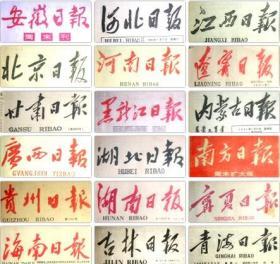 安徽日報
周末刊
河北日報
HEBEI RIBAO
江西日報
JIANGXI RIBAO
北京日報
河南日報
HENAN RIBAO
遼寧日報
LIAONING RIBAO
甘肅日報
GANSU RIBAO
黑龍江日報
内蒙古日報
廣西日報
GVANGJSIH YIZBAO
湖北日報
HUBEI RIBAO
南方日報
周末扩大版
貴州日報
GUIZHOU RIBAO
湖南日報
HUNAN RIBAO
寧夏日報
NINGXIA RIBAO
海南日報
HAINAN RIBAO
吉林日報
JILIN RIBAO
青海日報
QINGHAI RIBAO